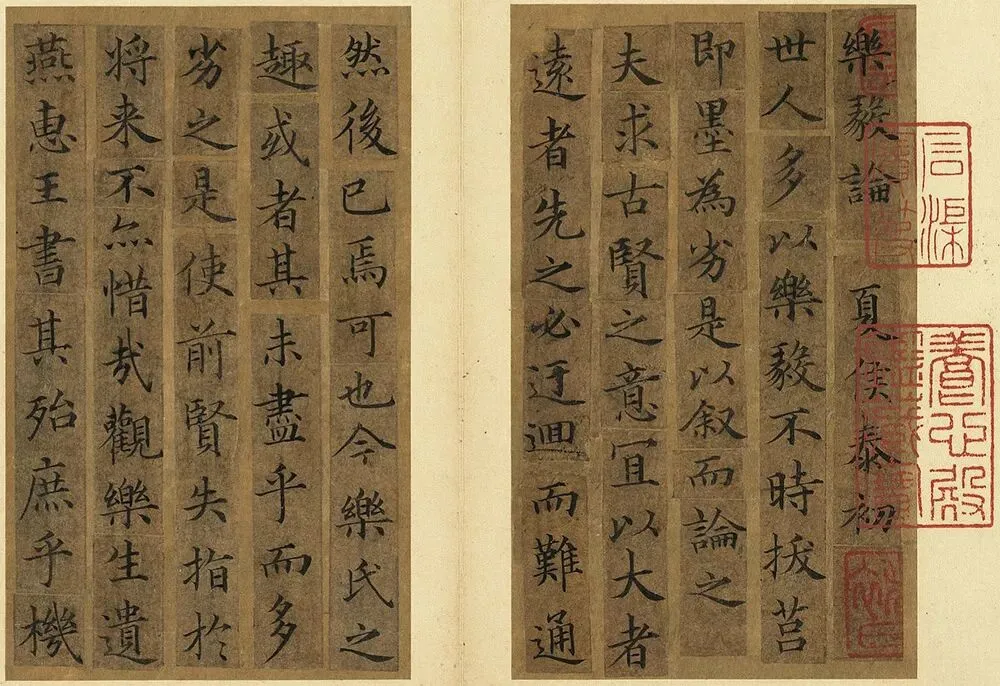 樂毅論 夏侯泰初
世人多以樂毅不時拔莒
即墨為劣是以叙而論之
夫求古賢之意宜以大者
遠者先之必迂迴而難通
然後已焉可也今樂氏之
趣或者其未盡乎而多
劣之是使前賢失指於
将来不亦惜哉觀樂生遺
燕惠王書其殆庶乎機
石渠
寶笈
養心殿
鑑藏寶